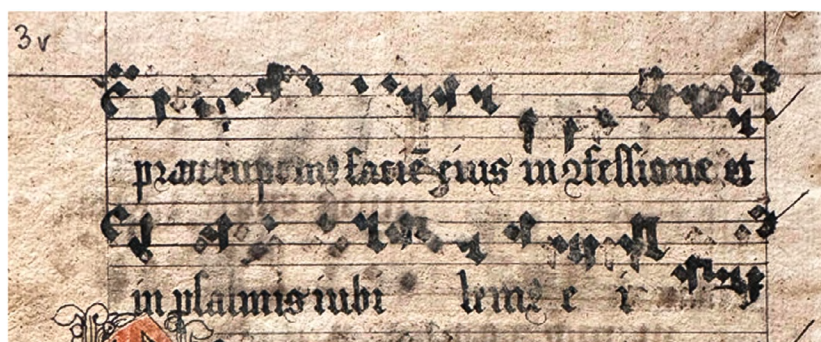 3v
preoccupemus faciē eius in ɔfessione et
in psalmis iubi lem9 e i